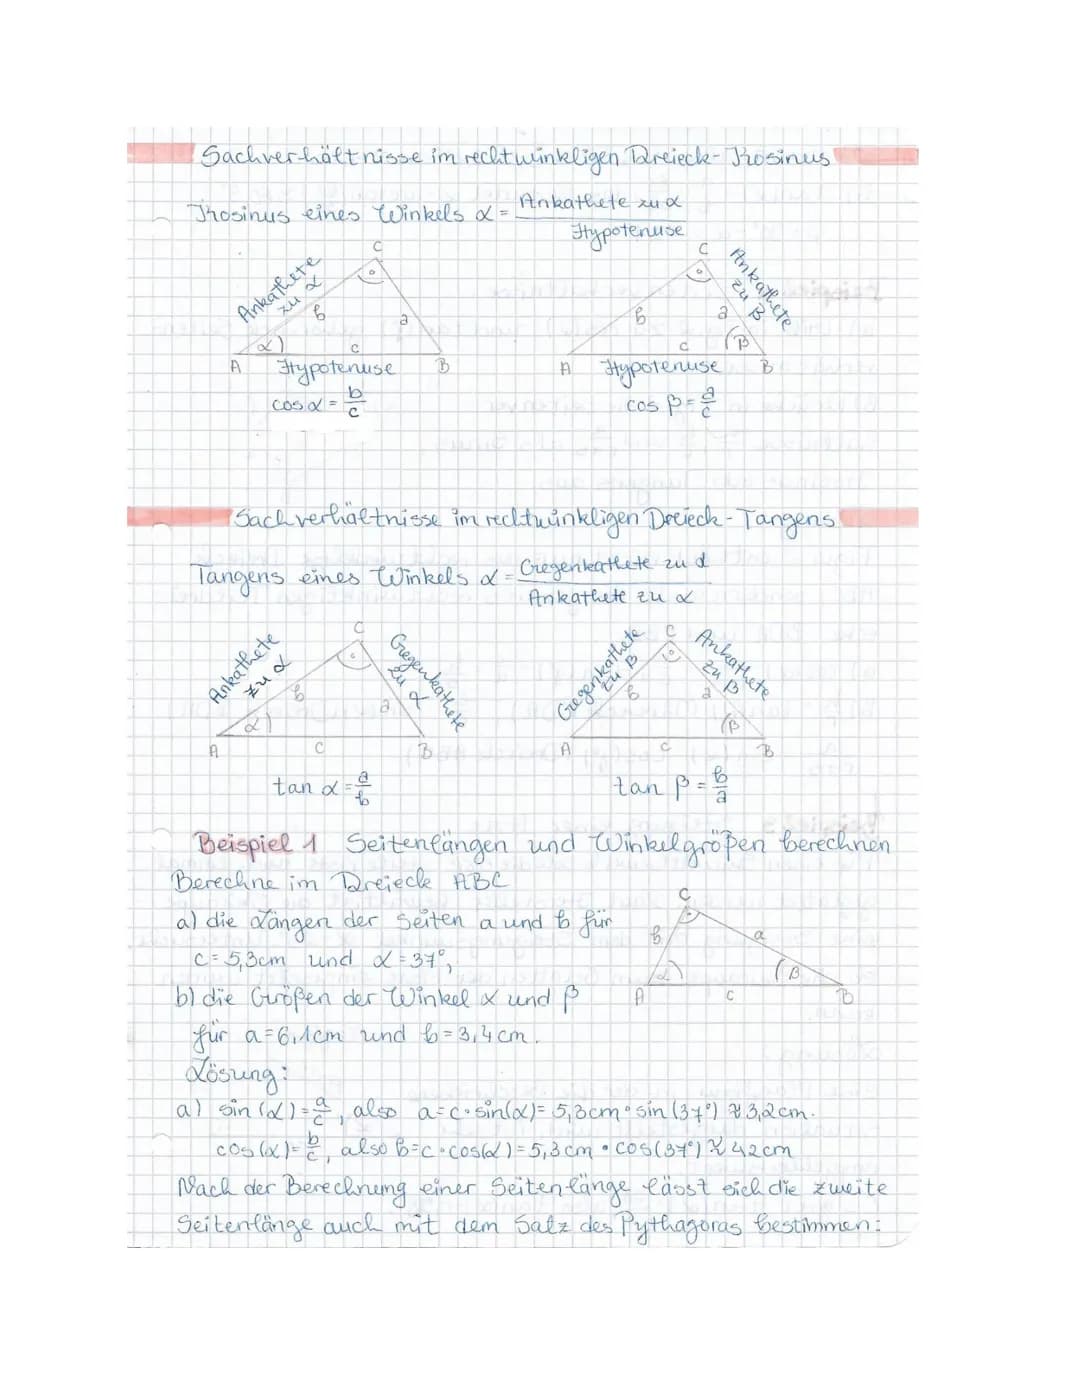 Sachverhältnisse im rechtwinkligen Dreieck - Kosinus
Kosinus eines Winkels α = Ankathete zu α
Hypotenuse
C
C
Ankathete zu α
Ankathete zu β
b
a
b
a
α
c
c
β
A
Hypotenuse
B
A
Hypotenuse
B
cos α = b/c
cos β = a/c
Sachverhältnisse im rechtwinkligen Dreieck - Tangens
Tangens eines Winkels α = Gegenkathete zu α
Ankathete zu α
C
C
Ankathete zu α
Gegenkathete zu α
Gegenkathete zu β
Ankathete zu β
b
a
b
a
α
β
A
c
B
A
c
B
tan α = a/b
tan β = b/a
Beispiel 1 Seitenlängen und Winkelgrößen berechnen
Berechne im Dreieck ABC
C
a) die Längen der Seiten a und b für
b
a
c = 5,3cm und α = 37°,
α
β
b) die Größen der Winkel α und β
A
c
B
für a = 6,1cm und b = 3,4cm.
Lösung:
a) sin (α) = a/c, also a = c · sin(α) = 5,3cm · sin (37°) ≈ 3,2cm.
cos (α) = b/c, also b = c · cos(α) = 5,3cm · cos(37°) ≈ 4,2cm
Nach der Berechnung einer Seitenlänge lässt sich die zweite
Seitenlänge auch mit dem Satz des Pythagoras bestimmen: